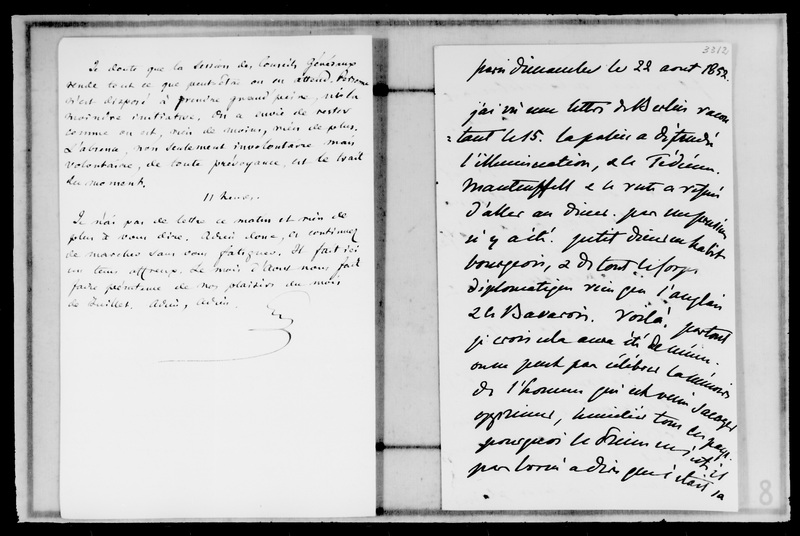 Je doute que la session des Conseils généraux
rende tout ce que peut-être on en attend. Personne
n'est disposé à prendre grand peine, ni la
moindre initiative. On a envie de rester
comme on est, rien de moins, rien de plus.
L'absence, non seulement involontaire mais
volontaire, de toute prévoyance, est le trait
du moment.
11 heures.
Je n'ai pas de lettre ce matin et rien de
plus à vous dire. Adieu donc, et continuez
de marcher sans vous fatiguer. Il fait ici
un tems affreux. Le mois d'Aout nous fait
faire pénitence de nos plaisirs du mois
de Juillet. Adieu, Adieu.
3312
paris dimanche le 22 aout 1852.
j'ai vu une lettre de Berlin racon
=tant le 15. la police a défendu
l'illumination, & le Tédéum.
Manteuffell & le reste a refusé
d'aller au diner. pas un prussien
n'y a été. petit diner en habit
bourgeois, & de tout le Corps
diplomatique rien que l'anglais
& le Bavarois. Voilà. partout
je crois cela aura été de même.
on ne peut pas célébrer la mémoire
de l'homme qui est venu saccager
opprimer, humilier tous les pays.
pourquoi le
pas borné à dire que c'était sa
8